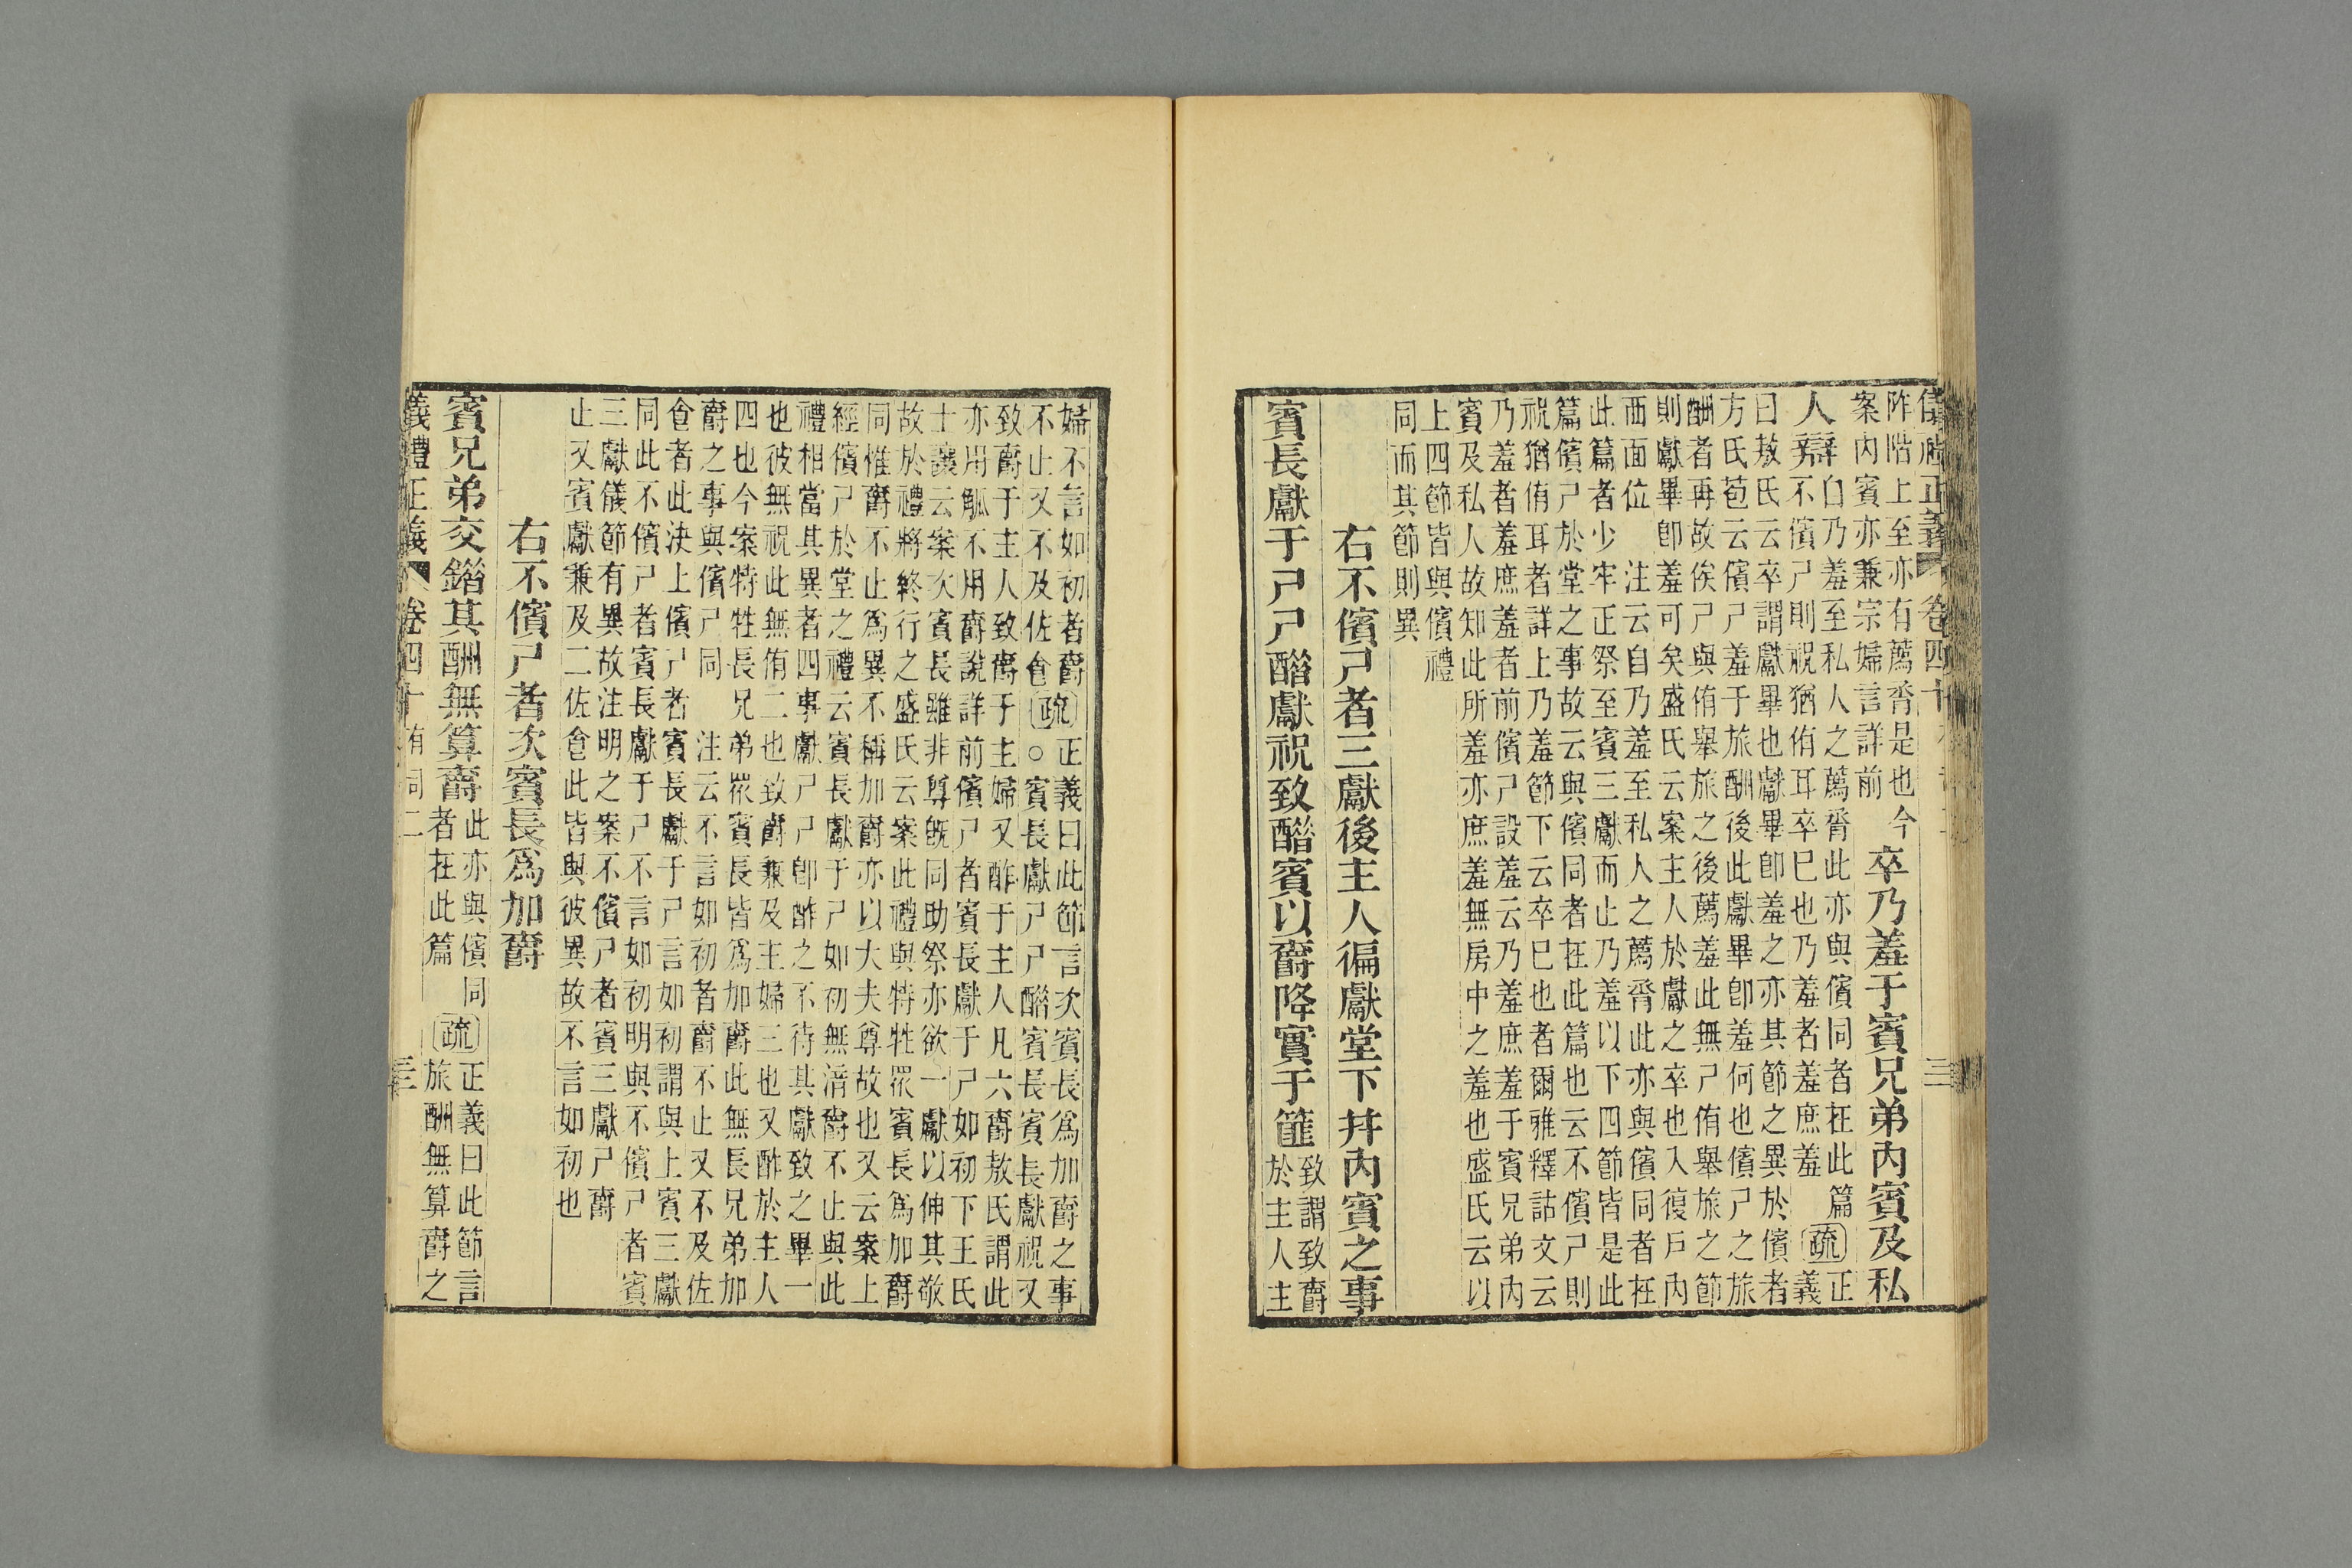 正義 卷四十 三
阼階上至亦有薦脀是也今
案內賓亦兼宗婦言詳前
卒乃羞于賓兄弟內賓及私
人辯
自乃羞至私人之薦脀此亦與儐同者在此篇
不儐尸則祝猶侑耳卒已也乃羞者羞庶羞
疏 正
義
曰敖氏云卒謂獻畢也獻畢卽羞之亦其節之異於儐者
方氏苞云儐尸羞于旅酬後此獻畢卽羞何也儐尸之旅
酬者再故俟尸與侑舉旅之後薦羞此無尸侑舉旅之節
則獻畢卽羞可矣盛氏云案主人於獻之卒也入復戶內
西面位 注云自乃羞至私人之薦脀此亦與儐同者在
此篇者少牢正祭至賓三獻而止乃羞以下四節皆是此
篇儐尸於堂之事故云與儐同者在此篇也云不儐尸則
祝猶侑耳者詳上乃羞節下云卒已也者爾雅釋詁文云
乃羞者羞庶羞者前儐尸設羞云乃羞庶羞于賓兄弟內
賓及私人故知此所羞亦庶羞無房中之羞也盛氏云以
上四節皆與儐禮
同而其節則異
右不儐尸者三獻後主人徧獻堂下并內賓之事
賓長獻于尸尸醋獻祝致醋賓以爵降實于篚
致謂致爵
於主人主
婦不言如初者爵
不止又不及佐食
疏
正義曰此節言次賓長爲加爵之事
○賓長獻尸尸醋賓長賓長獻祝又
致爵于主人致爵于主婦又酢于主人凡六爵敖氏謂此
亦用觚不用爵說詳前儐尸者賓長獻于尸如初下王氏
士讓云案次賓長雖非尊旣同助祭亦欲一獻以伸其敬
故於禮將終行之盛氏云案此禮與特牲眾賓長爲加爵
同惟爵不止爲異不稱加爵亦以大夫尊故也又云案上
經儐尸於堂之禮云賓長獻于尸如初無湆爵不止與此
禮相當其異者四事獻尸尸卽酢之不待其獻致之畢一
也彼無祝此無侑二也致爵兼及主婦三也又酢於主人
四也今案特牲長兄弟眾賓長皆爲加爵此無長兄弟加
爵之事與儐尸同 注云不言如初者爵不止又不及佐
食者此決上儐尸者賓長獻于尸言如初謂與上賓三獻
同此不儐尸者賓長獻于尸不言如初明與不儐尸者賓
三獻儀節有異故注明之案不儐尸者賓三獻尸爵
止又賓獻兼及二佐食此皆與彼異故不言如初也
右不儐尸者次賓長爲加爵
賓兄弟交錯其酬無算爵
此亦與儐同
者在此篇
疏
正義曰此節言
旅酬無算爵之
禮正義 卷四十